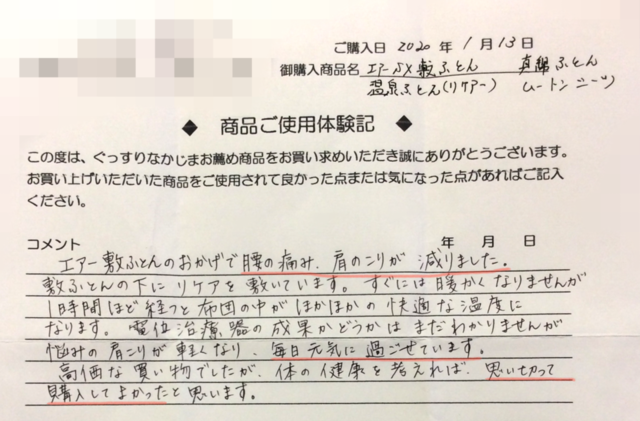 ご購入日 2020 年 1月 13日
御購入商品名 エアーSX敷ふとん 真綿ふとん
温泉ふとん(リケアー) ムートンシーツ
◆ 商品ご使用体験記 ◆
この度は、ぐっすりなかじまお薦め商品をお買い求めいただき誠にありがとうございます。
お買い上げいただいた商品をご使用されて良かった点または気になった点があればご記入
ください。
コメント 年 月 日
エアー敷ふとんのおかげで腰の痛み、肩のこりが 減りました。
敷ふとんの下に リケアを 敷いています。すぐには 暖かくなりませんが
1時間ほど経つと布団の中がほかほかの快適な温度に
なります。電位治療器の成果かどうかは まだわかりませんが
悩みの肩こりが 軽くなり、毎日元気に 過ごせています。
高価な買い物でしたが、体の健康を考えれば、思い切って
購入してよかったと思います。